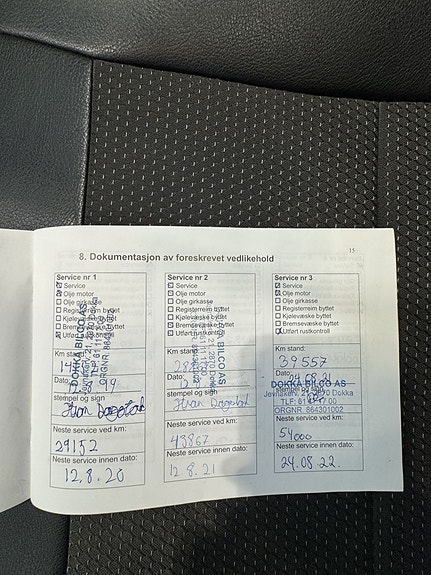 15
8. Dokumentasjon av foreskrevet vedlikehold
Service nr 1
Service
Olje motor
Olje girkasse
Registerreim byttet
Kjølevæske byttet
Bremsevæske byttet
Utført rustkontroll
Km stand:
Dato:
DOKKA BILCO AS
stempel og sign
Neste service ved km:
29152
Neste service innen dato:
12.8.20
Service nr 2
Service
Olje motor
Olje girkasse
Registerreim byttet
Kjølevæske byttet
Bremsevæske byttet
Utført rustkontroll
Km stand:
Dato:
BILCO AS
stempel og sign
Neste service ved km:
43867
Neste service innen dato:
12.8.21
Service nr 3
Service
Olje motor
Olje girkasse
Registerreim byttet
Kjølevæske byttet
Bremsevæske byttet
Utført rustkontroll
Km stand:
39557
Dato:
24.08.21
DOKKA BILCO AS
Jevnakerv. 21, 2870 Dokka
stempel og sign
TLF: 61 11 17 00
ORGNR. 864301002
Neste service ved km:
54000
Neste service innen dato:
24.08.22.